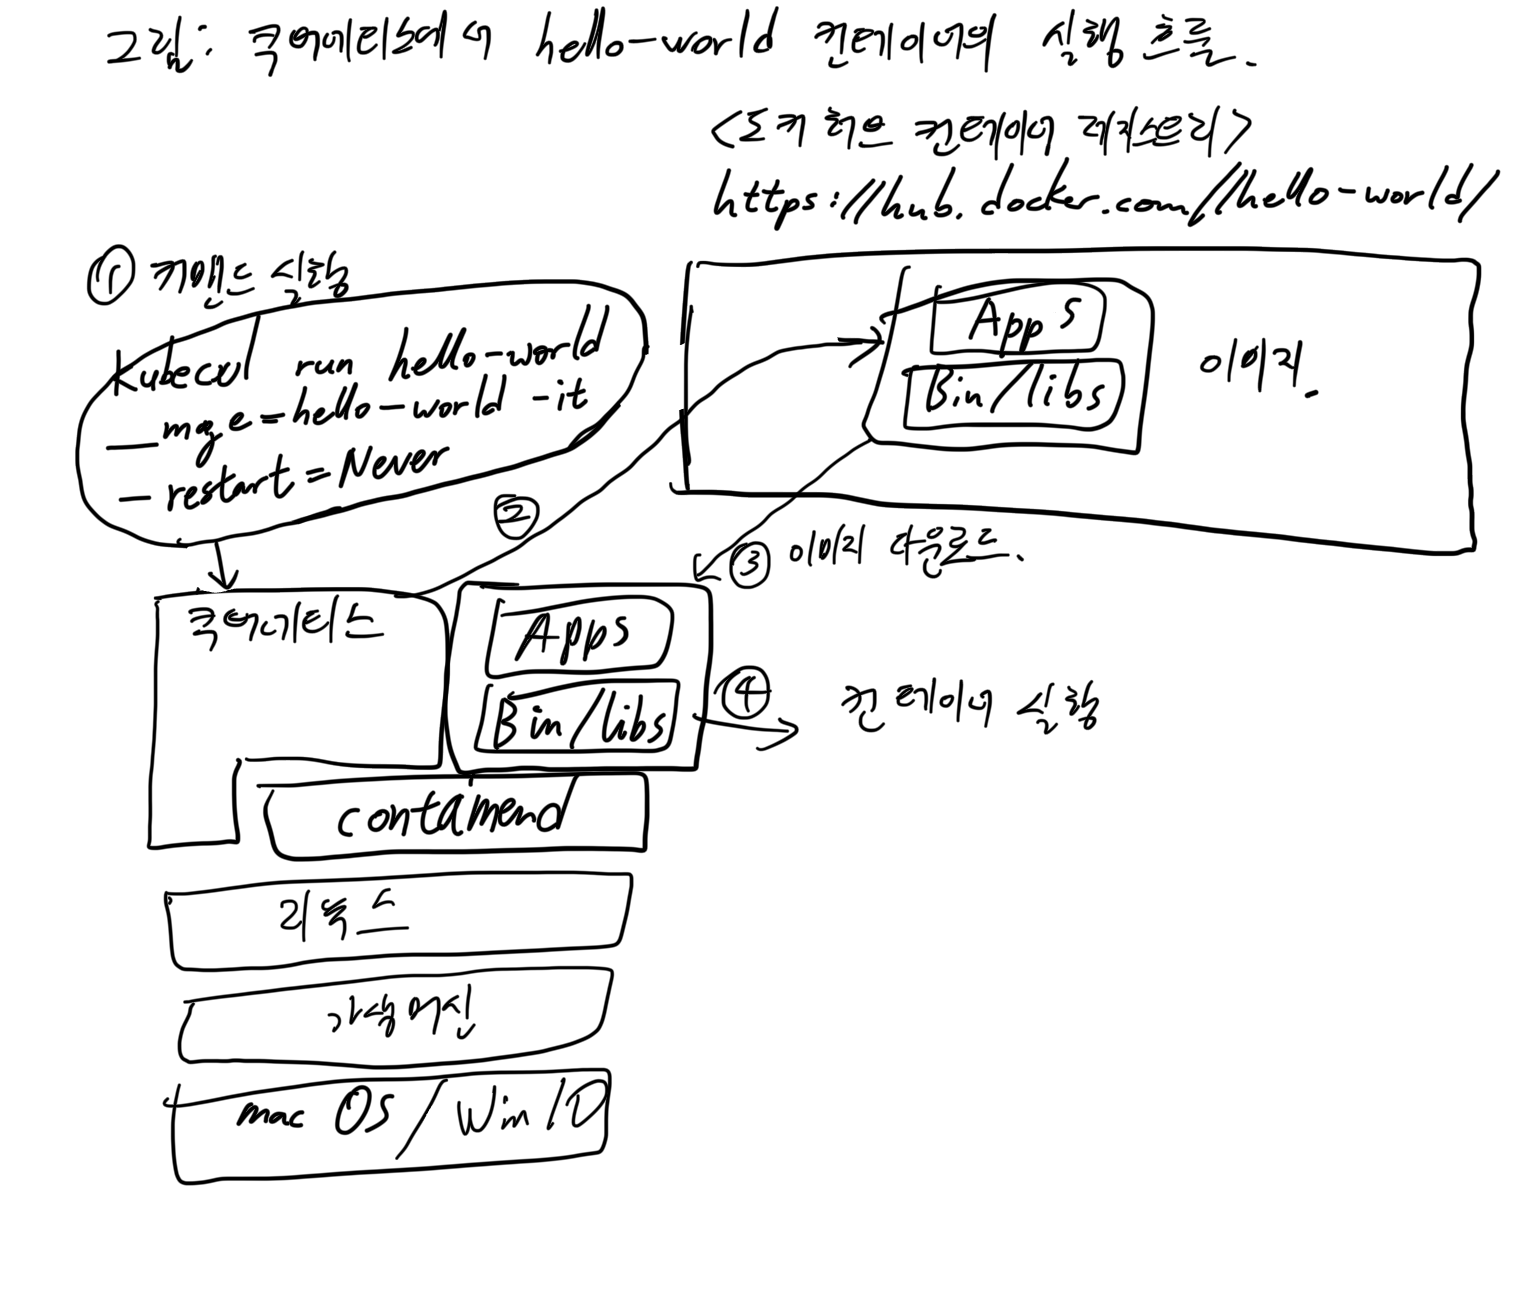 그림: 쿠버네티스에서 hello-world 컨테이너의 실행 흐름.
<도커 허브 컨테이너 레지스트리>
https://hub.docker.com//hello-world/
① 커맨드 실행
kubecul run hello-world
hello-world -it
- restart = Never
②
Apps
Bin/libs
이미지.
③ 이미지 다운로드.
쿠버네티스
Apps
Bin/libs
④ 컨테이너 실행
contamend
리눅스
가상머신
mac OS / Win 10